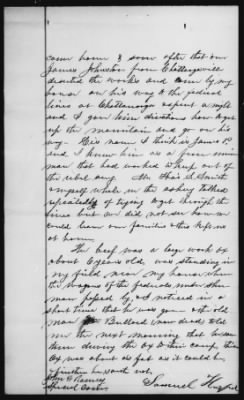 came home & soon after that one
James Johnston from Chattoogaville
deserted the works and came by my
house on his way to the federal
lines at Chattanooga & spent a night
and I gave him directions how to get
up the mountain and go on his
way. His name I think is James P.
and I knew him as a free union
man that had worked to keep out of
the rebel army. Mr Hair & Smith
& myself while in the ashery talked
repeatedly of trying to get through the
lines but we did not see how we
could leave our families without refuse
at home.
The beef, was a large work ox
about 6 years old, was standing in
my field near my house when
the wagons of the federals under Sherman
passed by, & I noticed in a
short time that he was gone. The old
man Bullard now dead told
me the next morning that he saw
them driving the ox to their camp, the
Ox was about as fat as it could be
& further he saith not.
Samuel
John
Special Com